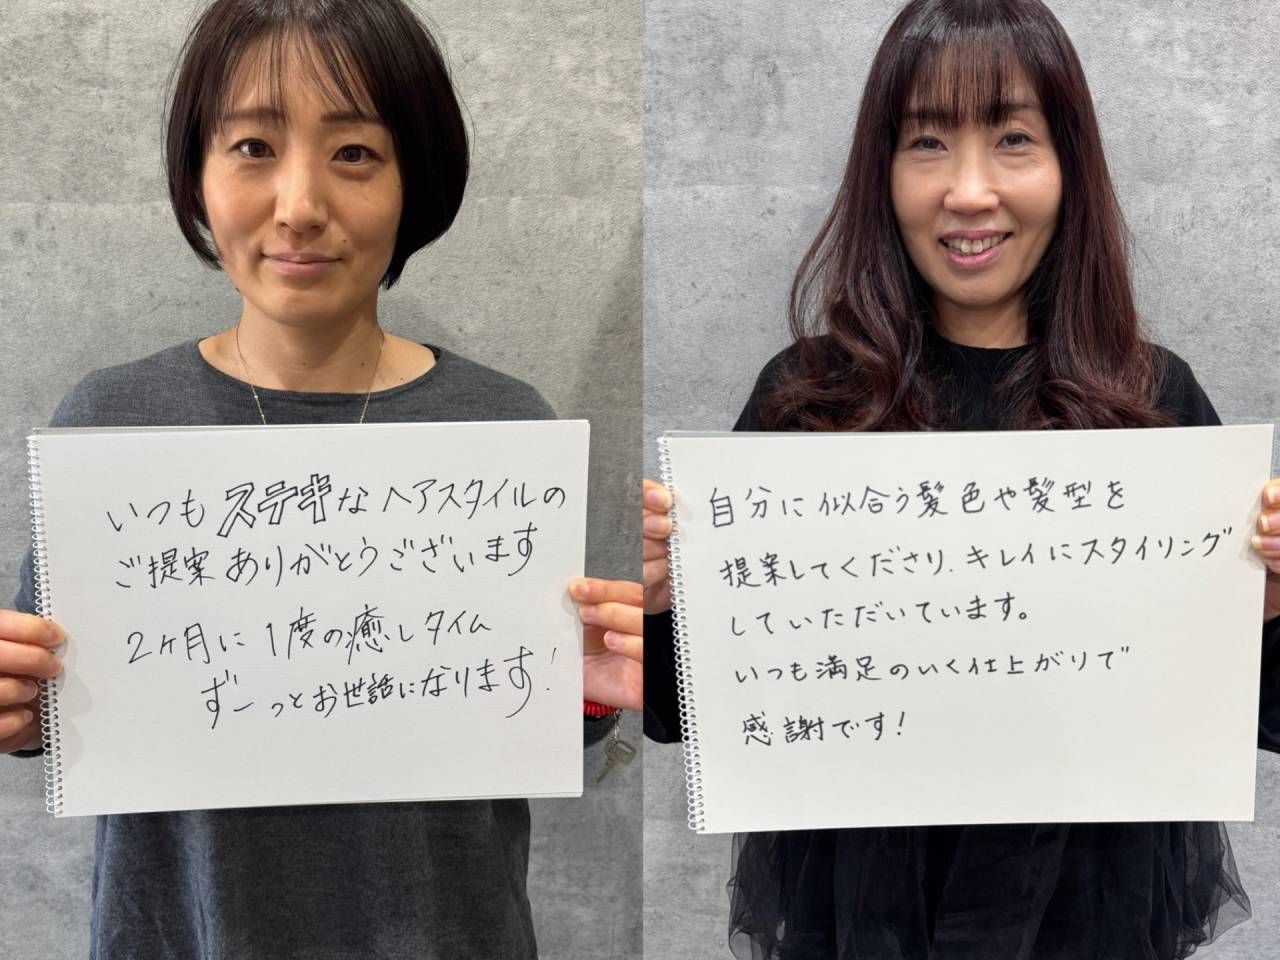 いつもステキなヘアスタイルの
ご提案ありがとうございます
2ヶ月に1度の癒しタイム
ずーっとお世話になります!
自分に似合う髪色や髪型を
提案してくださり、キレイにスタイリング
していただいています。
いつも満足のいく仕上がりで
感謝です!